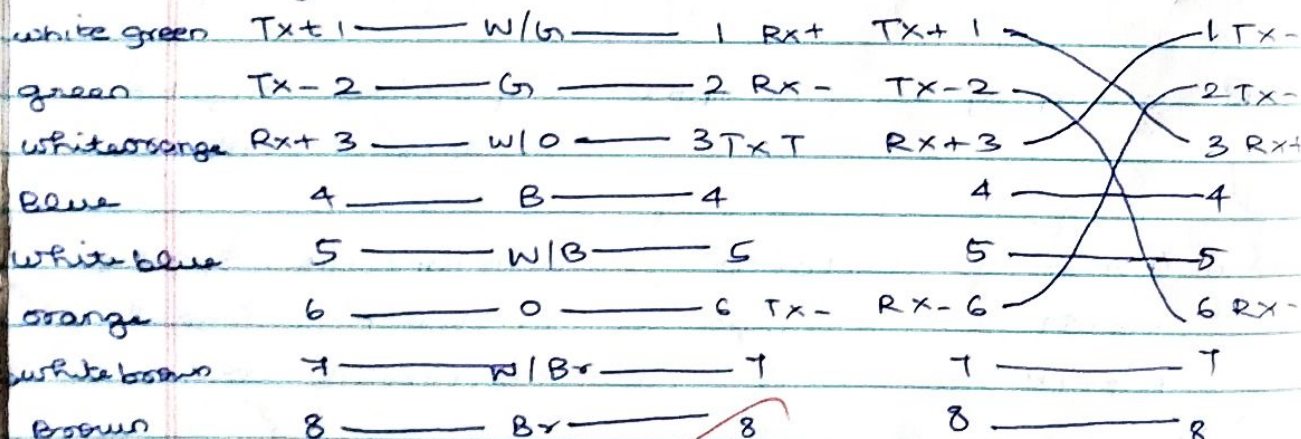 white green Tx+ 1 W/G 1 Rx+ Tx+ 1 1 Tx-
green Tx- 2 G 2 Rx - Tx-2 2 Tx-
whiteorange Rx+ 3 W/O 3 Tx T Rx+3 3 Rx+
Blue 4 B 4 4 4
white blue 5 W/B 5 5 5
orange 6 O 6 Tx- Rx-6 6 Rx-
white brown 7 W/Br 7 7 7
Brown 8 Br 8 8 8